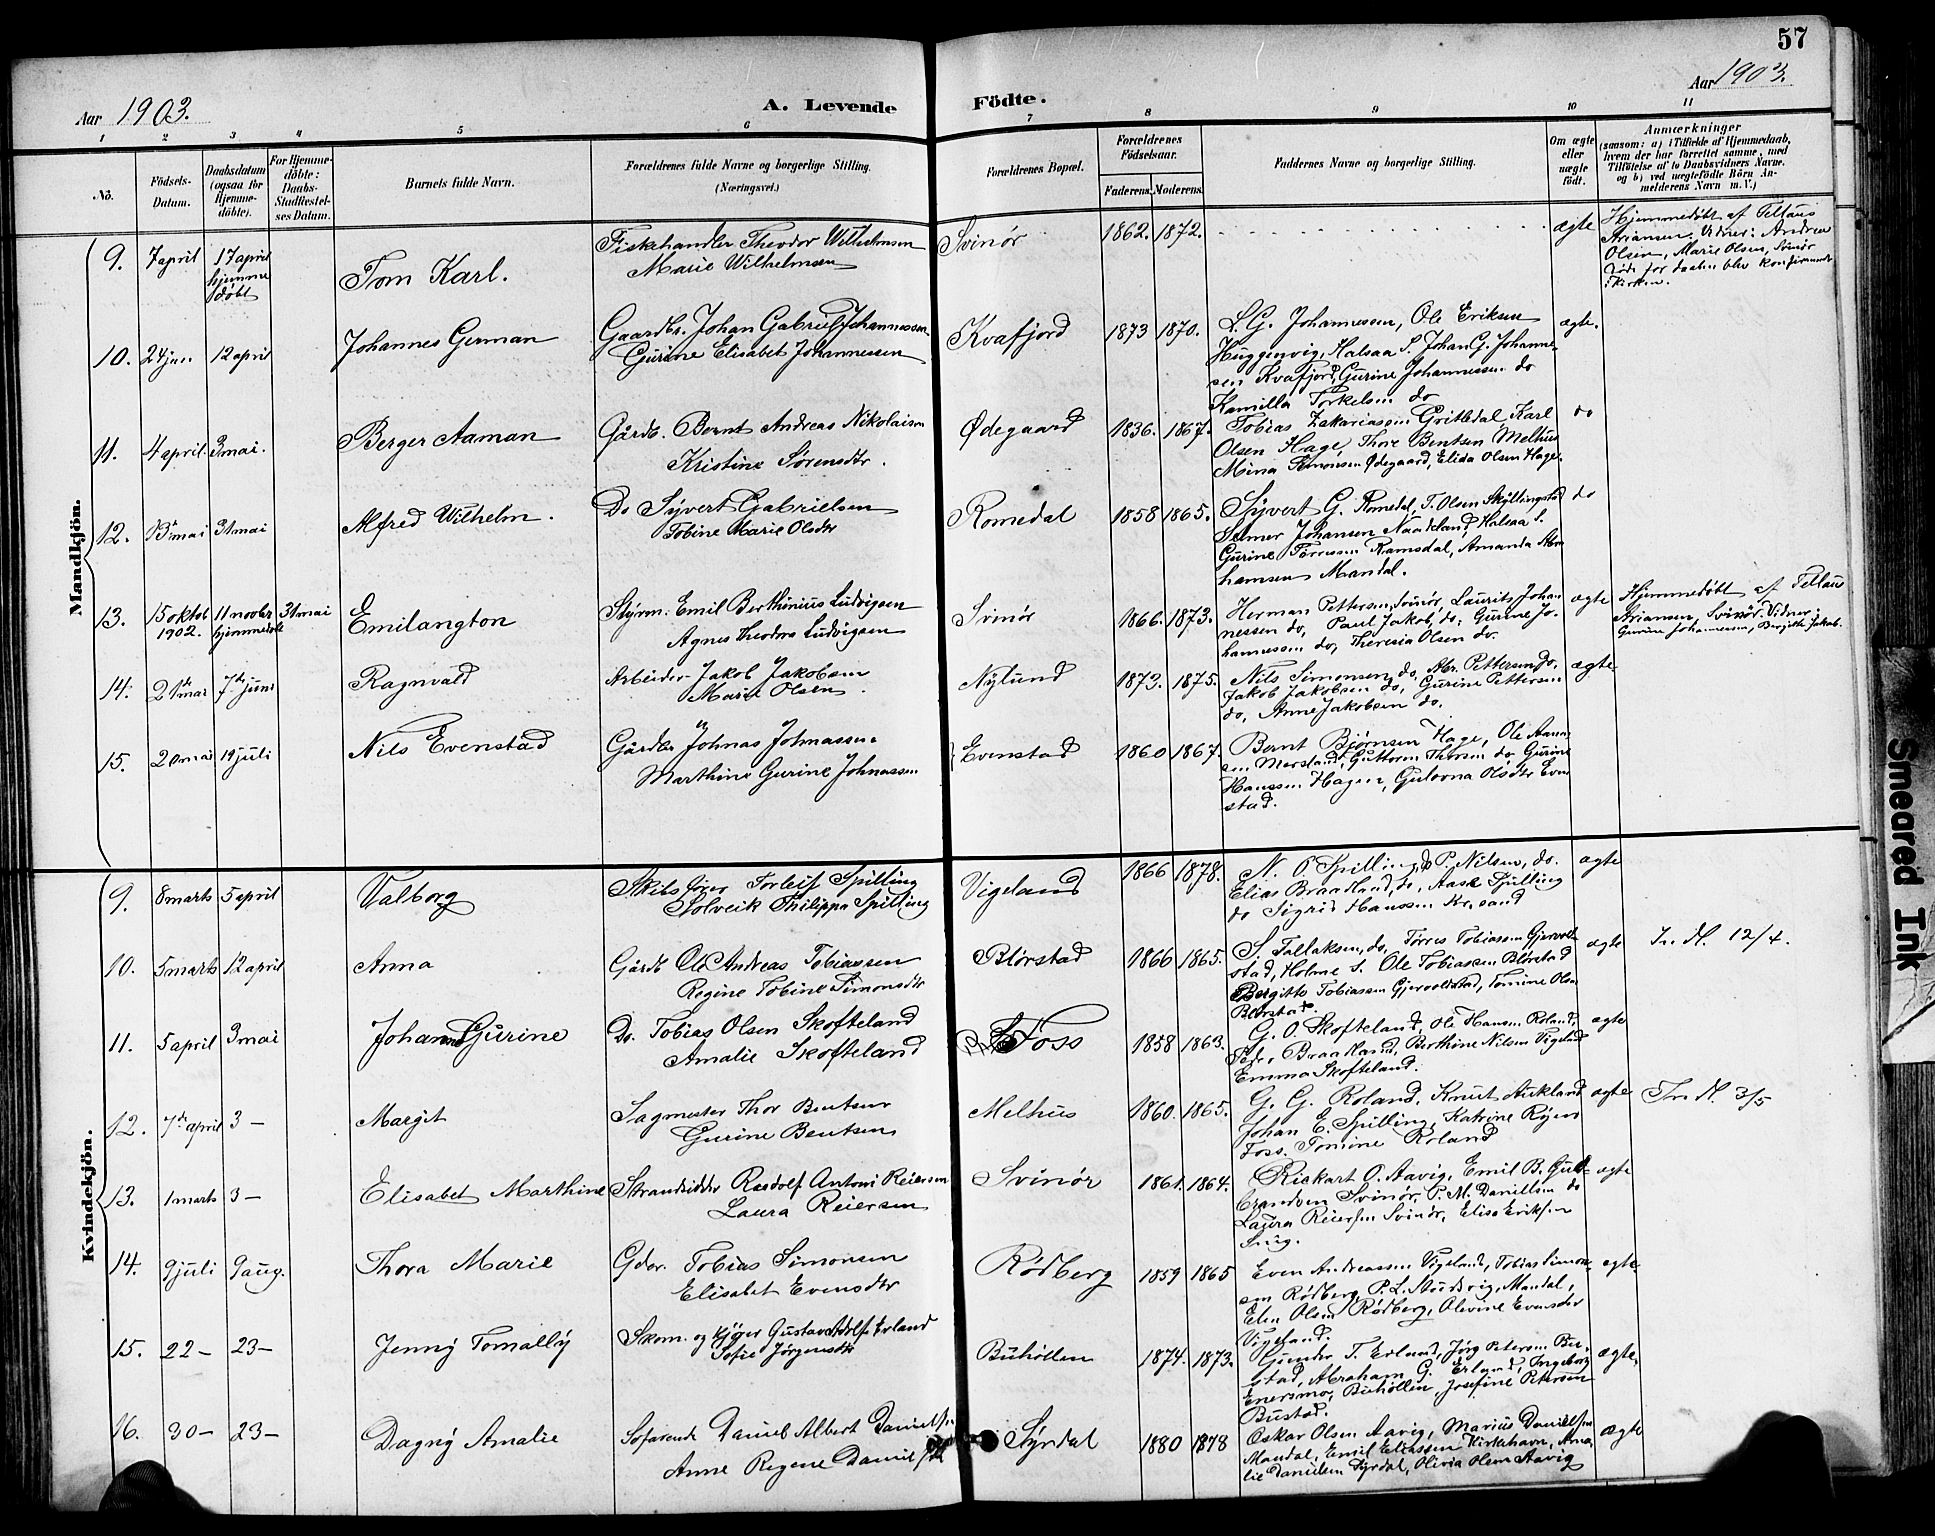 57
Aar 1903.
A. Levende Födte.
Aar 1903.
1 2 3 4 5 6 7 8 9 10 11
Nö.
Födsels-Datum.
Daabsdatum (ogsaa for Hjemme-döbte).
For Hjemme-döbte: Daabs-Stadfæstel-ses Datum.
Barnets fulde Navn.
Forældrenes fulde Navne og borgerlige Stilling. (Næringsvei.)
Forældrenes Bopæl.
Forældrenes Födselsaar.
Faderens. Moderens.
Faddernes Navne og borgerlige Stilling.
Om ægte eller uægte födt.
Anmærkninger
(saasom: a) i Tilfælde af Hjemmedaab, hvem der har forrettet samme, med Tilföielse af to Daabsvidners Navne. og b) ved uægtefödte Börn Anmelderens Navn m. V.)
Mandkjön.
9. 7 april 17 april hjemme døbt Tom Karl. Fiskehandler Theodor Wilhelmsen
Marie Wilhelmsen Svinør 1862. 1872. ægte Hjemmedøbt af Tellaus Ariansen. Vidner: Andrea Olsen, Marie Olsen, Svinør
10. 24 jan. 12 april Johannes German Gaardbr. Johan Gabriel Johannessen
Gurine Elisabet Johannessen Kvafjord 1873 1870. L. G. Johannessen, Ole Eriksen
Huggenvig, Halsaa S. Johan G. Johannesen Kvafjord, Gurine Johannessen do
Kamilla Torkelsen do ægte.
11. 4 april. 3 mai. Berger Aaman Gårdb. Bernt Andreas Nikolaisen
Kristine Sørensdtr. Ødegaard 1836. 1867. Tobias Zakariassen Gritledal, Karl
Olsen Hage, Thore Bentsen Melhus
Mina Simonsen Ødegaard, Elida Olsen Hage. do
12. 13de mai 31 mai Alfred Wilhelm. Do Syvert Gabrielsen
Tobine Marie Olsdtr Romedal 1858 1865. Syvert G. Romedal, T. Olsen Skyllingstad
Selmer Johansen Naakland, Halsaa S.
Gurine Tørresen Ramsdal, Amanda Abrahamsen Mandal. do
13. 15 oktob 1902. 11 novbr hjemmedøbt 31 mai Emilangton Styrm. Emil Berthinius Ludvigsen
Agnes Theodora Ludvigsen Svinør 1866. 1873. Herman Pettersen, Svinør, Laurits Johannessen do, Paul Jakob, do, Gurine Johannessen do, Theresia Olsen do. ægte Hjemmedøbt af Tellaus
Ariansen, Svinør. Vidner:
Gurine Johannessen, Bergitte Jakob.
14. 21de mai 7de juni Ragnvald Arbeider Jakob Jakobsen
Marie Olsen. Nylund 1873. 1875. Nils Simonsen do, Abr. Pettersen do,
Jakob Jakobsen do, Gurine Pettersen
do, Anne Jakobsen do. ægte
15. 20 mai 19 juli Nils Evenstad Gårdbr Johnas Johnassen
Marthine Gurine Johnassen Evenstad 1860 1867. Bernt Bjørnsen Hage, Ole Aanensen Mersland, Guttorm Thorsen do Gurine
Hanssen Hagen, Gulovna Olsdtr Evenstad.
Kvindekjön.
9. 8 marts 5 april Valborg Skibsfører Torleif Spilling
Solveik Philippa Spilling Vigeland 1866 1878. N. O. Spilling, do P. Nilsen, do.
Elias Braadland, do, Aase Spilling
do Sigrid Hanssen Kr.sand ægte
10. 5 marts 12 april Anna Gårdb Ole Andreas Tobiassen
Regine Tobine Simonsdtr Blørstad 1866 1865. S. Tallaksen, do, Tørres Tobiassen Gjervoldstad, Holme S. Ole Tobiassen Blørstad
Bergitte Tobiassen Gjervoldstad, Tomine Olsen
Blørstad. ægte In. M. 12/4.
11. 5 april 3 mai Johanna Gurine Do. Tobias Olsen Skofteland
Amalie Skofteland Foss 1858 1863. G. O. Skofteland, Ole Hansen Roland,
Peder Braadland, Berthine Nilsen Vigeland
Emma Skofteland. ægte
12. 7de april 3 — Margit Sagmester Thor Bentsen
Gurine Bentsen Melhus 1860. 1865. G. G. Roland. Knut Aukland
Johan E. Spilling, Katrine Røjen
Foss. Tomine Roland ægte In. M. 3/5
13. 1 marts 3 — Elisabet Marthine Strandsidder Rudolf Antoni Reiersen
Laura Reiersen Svinør 1861. 1864. Rickart O. Aavig, Emil B. Gulbrandsen Svinør, P. M. Daniellsen do
Laura Reiersen Svinør, Elise Eriksen
Snig. ægte
14. 9 juli 9 aug. Thora Marie Gdbr. Tobias Simonsen
Elisabet Evensdtr Rødberg 1859 1865 Even Andreassen Vigeland, Tobias Simonsen Rødberg, P. L. Stusvig, Mandal,
Elen Olsen Rødberg, Olevine Evensdtr
Vigeland. ægte
15. 22 — 23 — Jenny Tomally Skom. og Kjøger Gustav Adolf Erland
Sofie Jørgensdtr Buhøllen 1874. 1873. Gunder T. Erland, Jørg Petersen Bustad, Abraham G. Erland, Ingeborg
Enersmo, Buhøllen, Josefine Petersen
Bustad. ægte.
16. 30 — 23 — Dagny Amalie Søfarende Daniel Albert Danielsen
Anne Regene Danielsen Syrdal 1880 1878 Oskar Olsen Aavig, Marius Danielsen
Mandal, Emil Eliassen Kirkehavn, Amalie Danielsen Syrdal, Olivia Olsen Aavig ægte
Smeared Ink